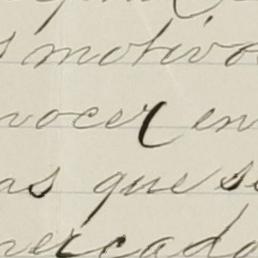 s motivo
nocer en
as que se
mercado